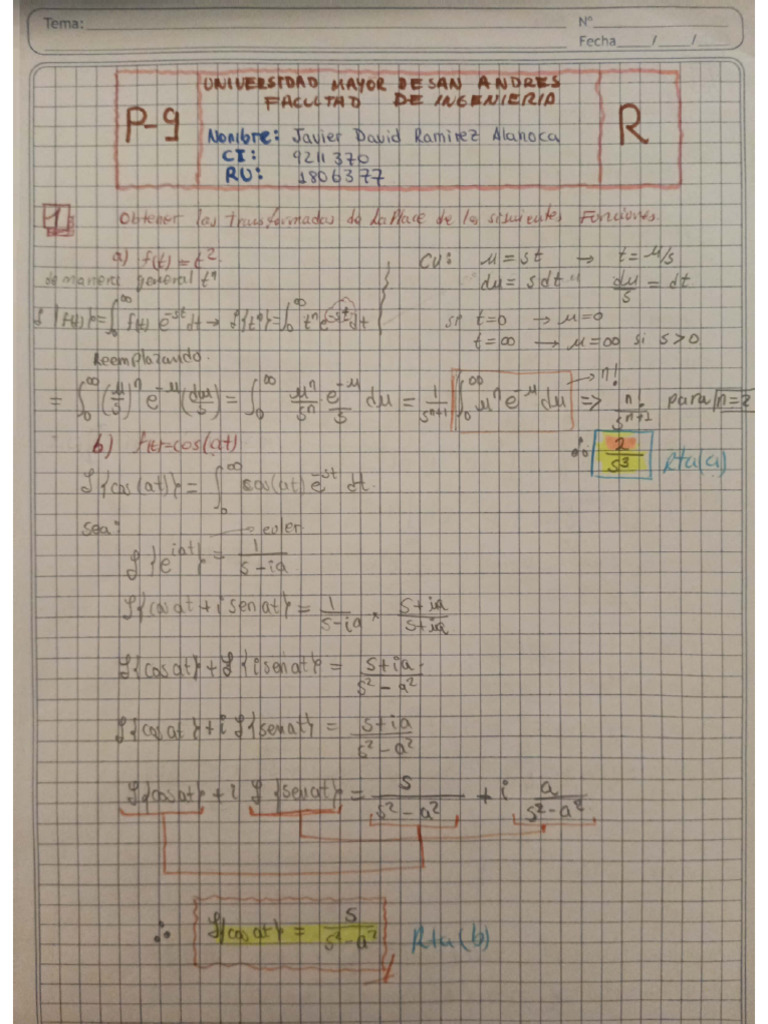 Tema:
N°
Fecha / /
UNIVERSIDAD MAYOR DE SAN ANDRES
FACULTAD DE INGENIERIA
P-9
Nombre: Javier David Ramirez Alanoca
CI: 9211370
RU: 1806377
R
1 Obtener las transformadas de LaPlace de los siguientes Funciones.
a) f(t)=t².
de manera general tⁿ
ℒ{f(t)}=∫₀^∞ f(t) e^-st dt → ℒ{tⁿ}=∫₀^∞ tⁿ e^-st dt
CV: μ=st → t=μ/s
du= sdt du/s = dt
si t=0 → μ=0
t=∞ → μ=∞ si s>0
Reemplazando.
= ∫₀^∞ (μ/s)ⁿ e^-μ (du/s) = ∫₀^∞ μⁿ/sⁿ e^-μ/s du = 1/sⁿ⁺¹ ∫₀^∞ μⁿ e^-μ du → n! => n!/sⁿ⁺¹ para n=2
∴ 2/s³ Rta(a)
b) f(t)=cos(at)
ℒ{cos(at)} = ∫₀^∞ cos(at) e^-st dt.
sea: → euler
ℒ{e^iat} = 1/(s-ia)
ℒ{cosat + i senat} = 1/(s-ia) * (s+ia)/(s+ia)
ℒ{cosat} + ℒ{i senat} = (s+ia)/(s²-a²)
ℒ{cosat} + i ℒ{senat} = (s+ia)/(s²-a²)
ℒ{cosat} + i ℒ{senat} = s/(s²-a²) + i a/(s²-a²)
∴ ℒ{cosat} = s/(s²-a²) Rta(b)